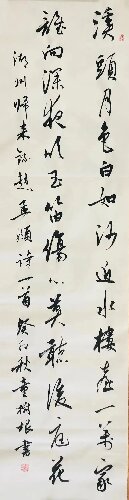 溪頭月色白如沙近水樓臺一萬家
誰向深夜吹玉笛傷心莫聽後庭花
湖州歸來錄趙孟頫詩一首癸卯秋童樹根書